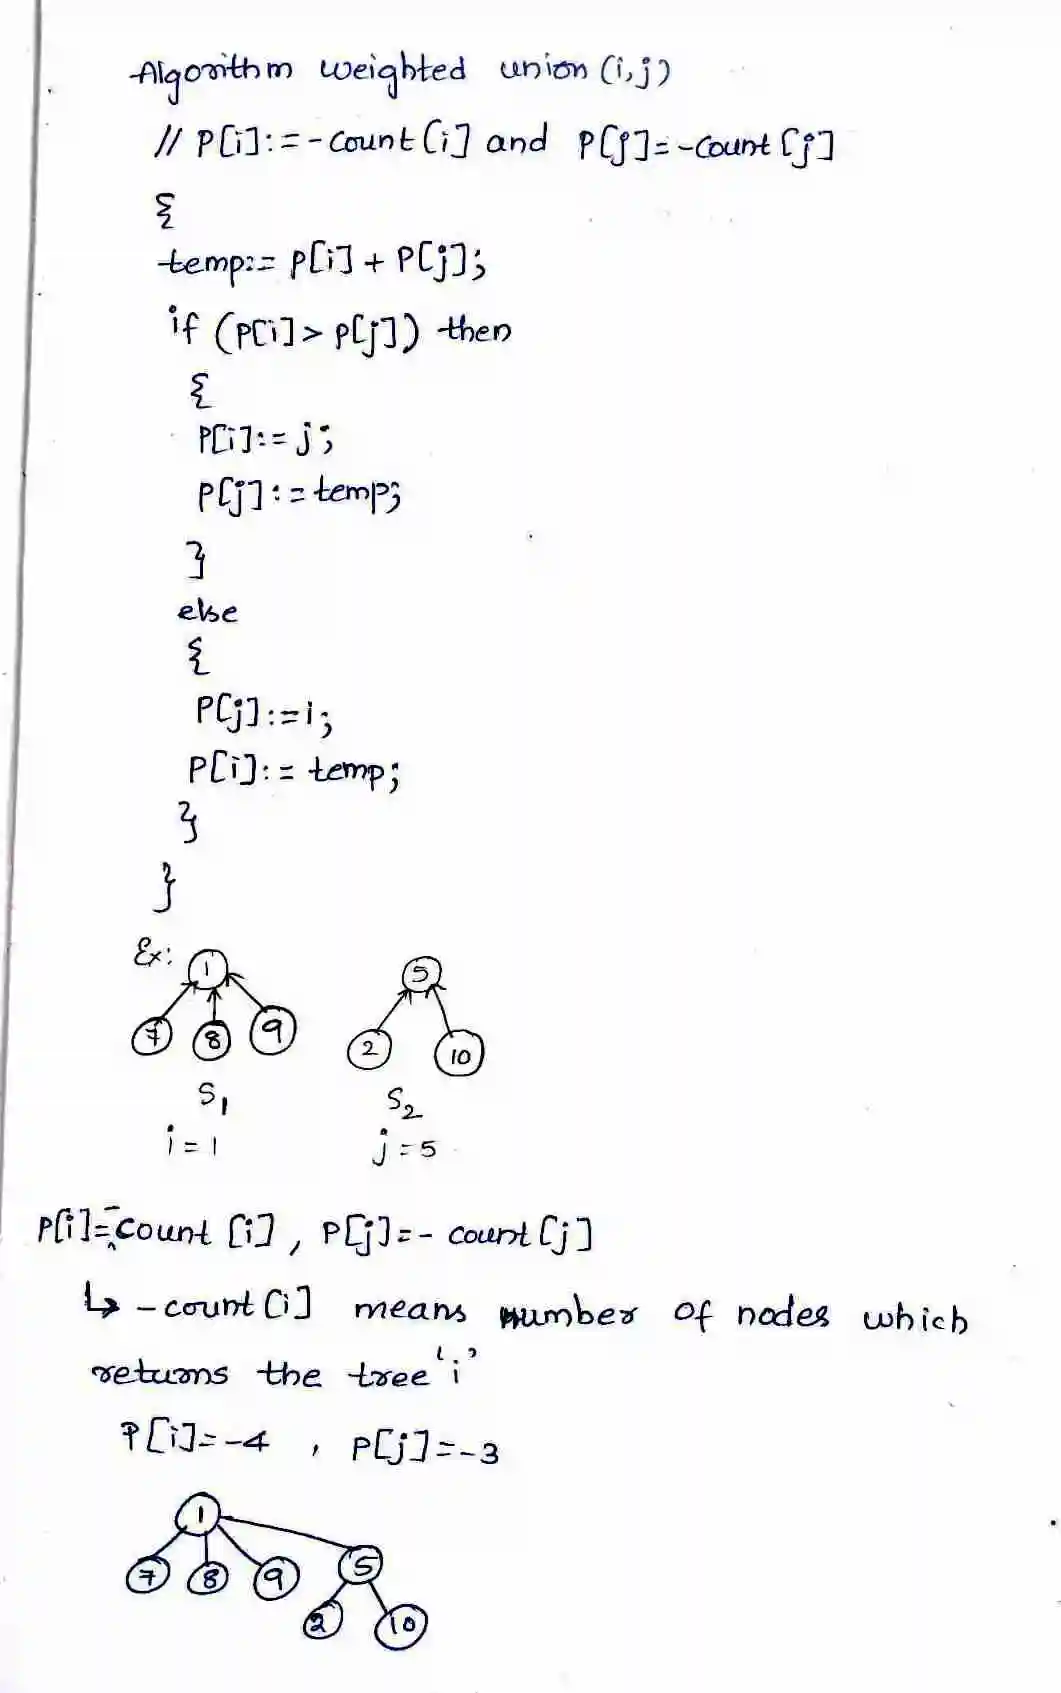 Algorithm weighted union (i,j)
// P[i]:=-count[i] and P[j]=-count[j]
{
temp:= P[i] + P[j];
if (P[i] > P[j]) then
{
P[i]:= j;
P[j]:= temp;
}
else
{
P[j]:= i;
P[i]:= temp;
}
}
Ex: 1 5
7 8 9 2 10
S1 S2
i = 1 j = 5
P[i]=-count [i], P[j]=- count[j]
↳ - count[i] means number of nodes which
returns the tree 'i'
P[i]=-4 , P[j]=-3
1
7 8 9 5
2 10